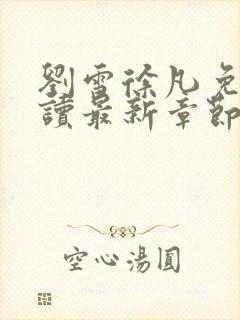 劉雪徐凡免
讀最新章節
空心湯圓